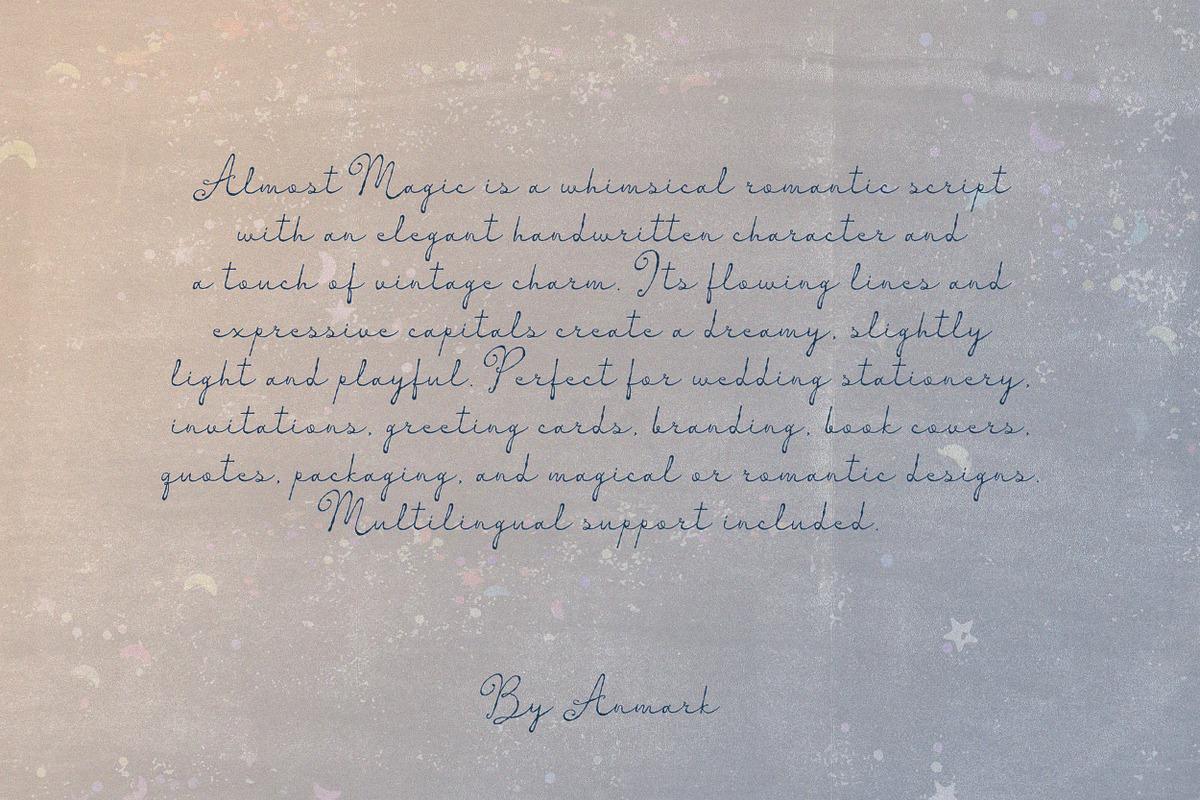 Almost Magic is a whimsical romantic script
with an elegant handwritten character and
a touch of vintage charm. Its flowing lines and
expressive capitals create a dreamy, slightly
light and playful. Perfect for wedding stationery,
invitations, greeting cards, branding, book covers,
quotes, packaging, and magical or romantic designs.
Multilingual support included.
By Anmark